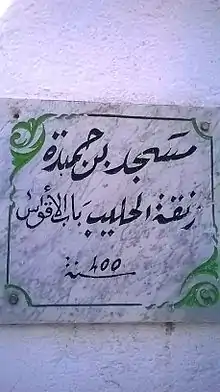 مسجد بن حميدة
زنقة الحليب باب الأقواس
400 سنة